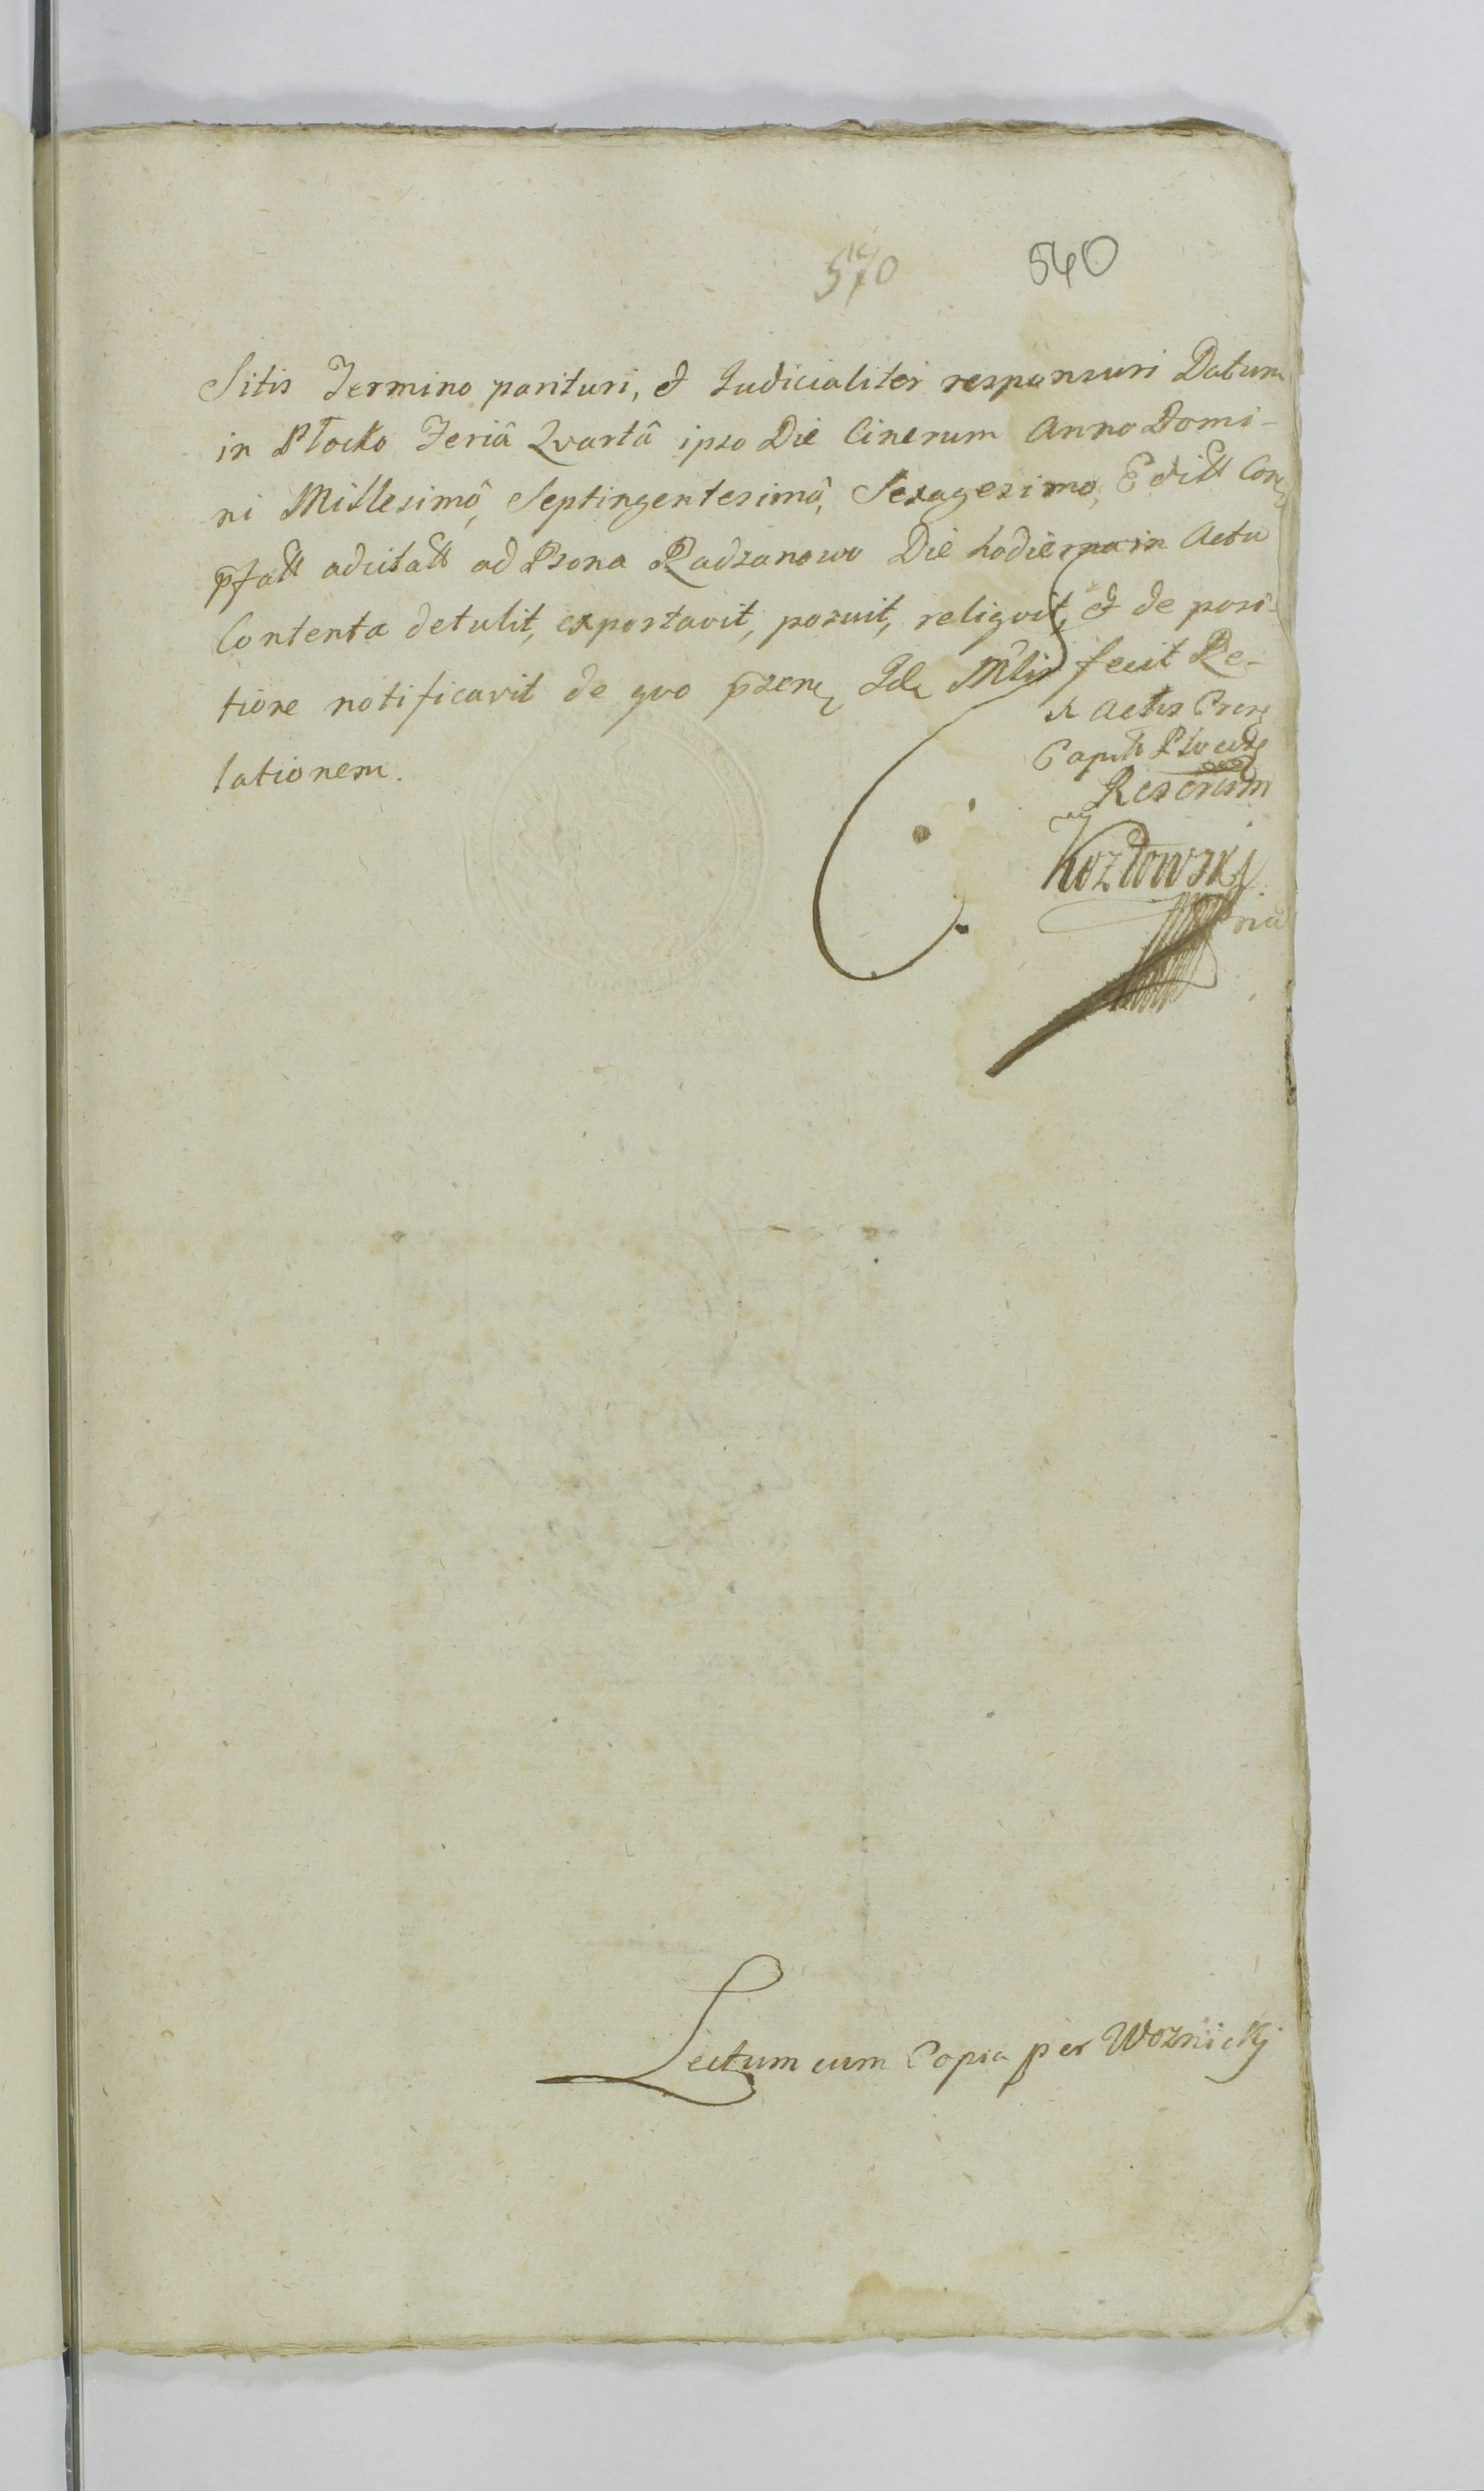 540 540
Sitis Termino parituri, et Judicialiter responsuri Datum
in Płocko Feriâ Qvartâ ipso Die Cinerum Anno Domi-
ni Millesimô, Septingentesimô, Sexagesimo,
ad Radzanowo Die hodierna in Actu
Contenta detulit, exportavit, posuit, reliqvit, et de posi-
tione notificavit de qvo Mlis fecit Re-
lationem.
Actis
Capit
Rescrism
Kozłowskj
Lectum cum Copia per Woznickj